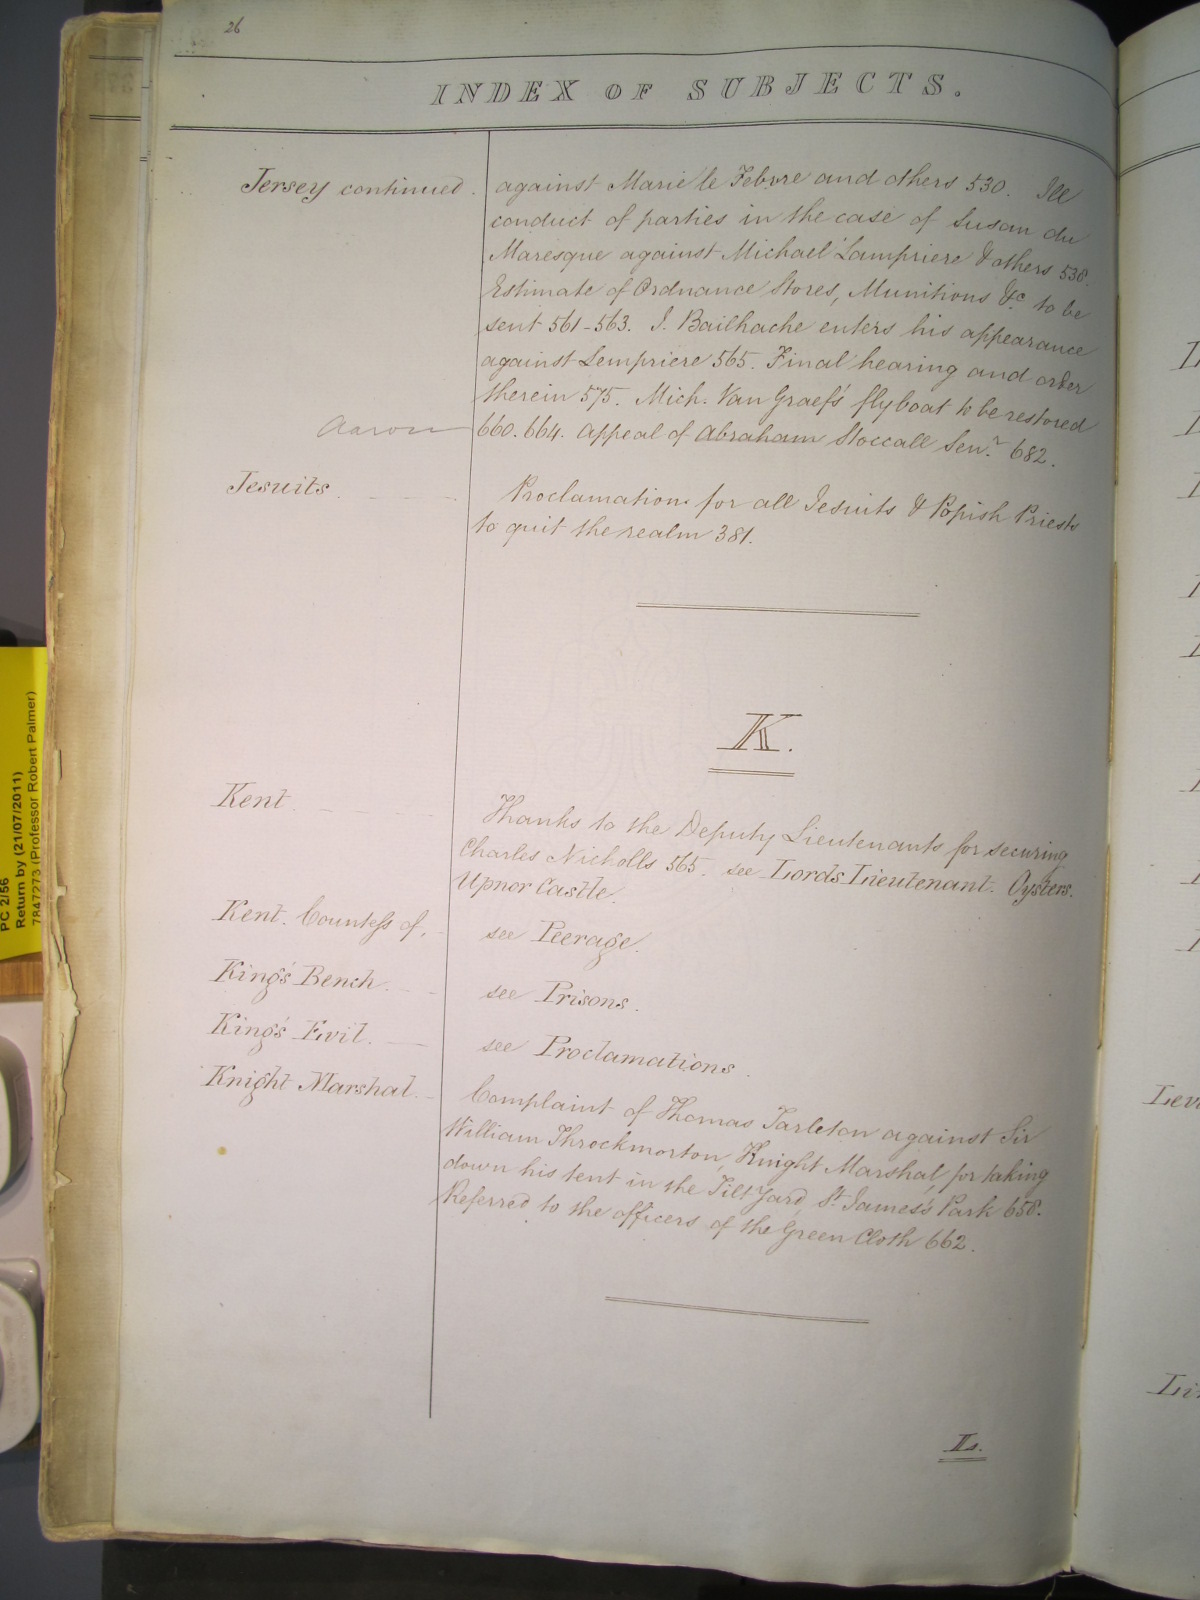 26
INDEX OF SUBJECTS.
Jersey continued. against Marie le Febvre and others 530. Ill
conduct of parties in the case of Susan du
Maresque against Michael Lampriere & others 538.
Estimate of Ordnance Stores, Munitions &c to be
sent 561-563. J. Bailhache enters his appearance
against Lempriere 565. Final hearing and order
therein 575. Mich. Van Graef's flyboat to be restored
Aaron 660. 664. Appeal of Abraham Stoccall Senr. 682.
Jesuits. Proclamations for all Jesuits & Popish Priests
to quit the realm 381.
K.
Kent. Thanks to the Deputy Lieutenants for securing
Charles Nicholls 565. see Lords Lieutenant. Oysters.
Upnor Castle.
Kent. Countess of, see Peerage.
King's Bench. see Prisons.
King's Evil. see Proclamations.
Knight Marshal. Complaint of Thomas Tarleton against Sir
William Throckmorton, Knight Marshal, for taking
down his tent in the Tilt Yard, St. James's Park 658.
Referred to the officers of the Green Cloth 662.
L.
PC 2/56
Return by (21/07/2011)
7847273 (Professor Robert Palmer)